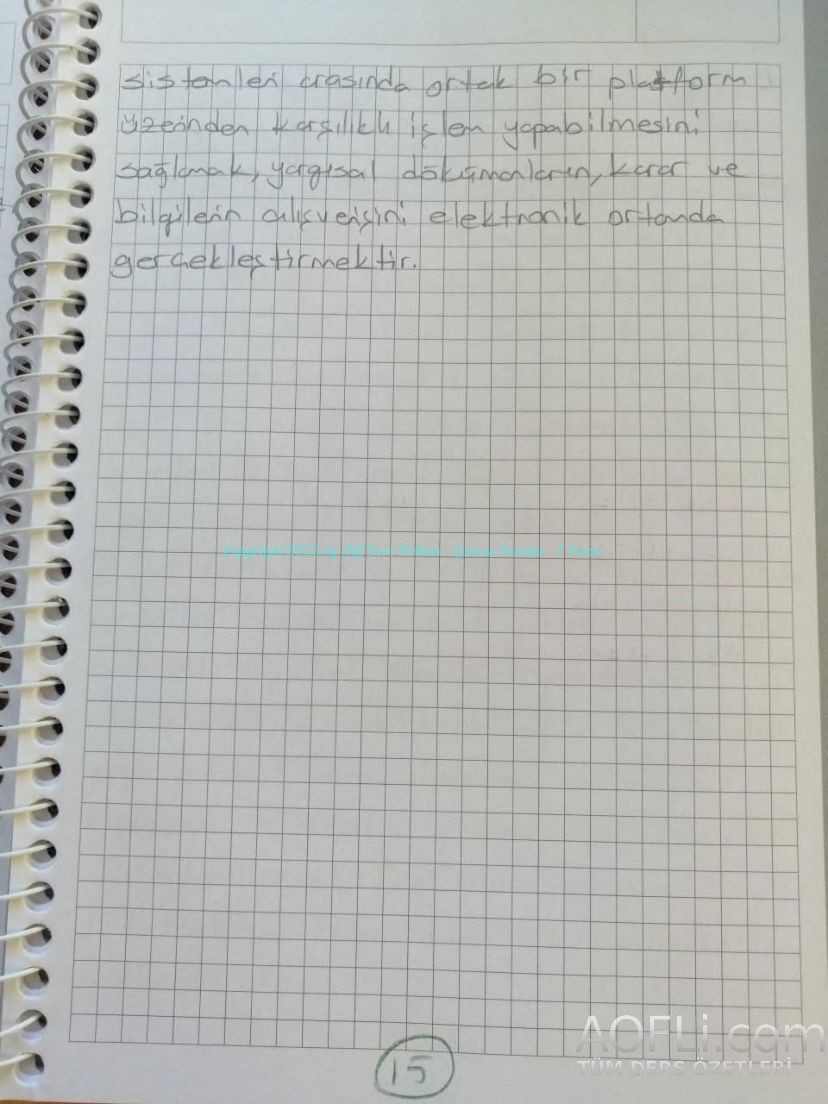 sistemleri arasında ortak bir platform
üzerinden karşılıklı işlem yapabilmesini
sağlamak, yargısal dökümanların, karar ve
bilgilerin alışverişini elektronik ortamda
gerçekleştirmektir.
15
AOFLi.com
TÜM DERS ÖZETLERİ